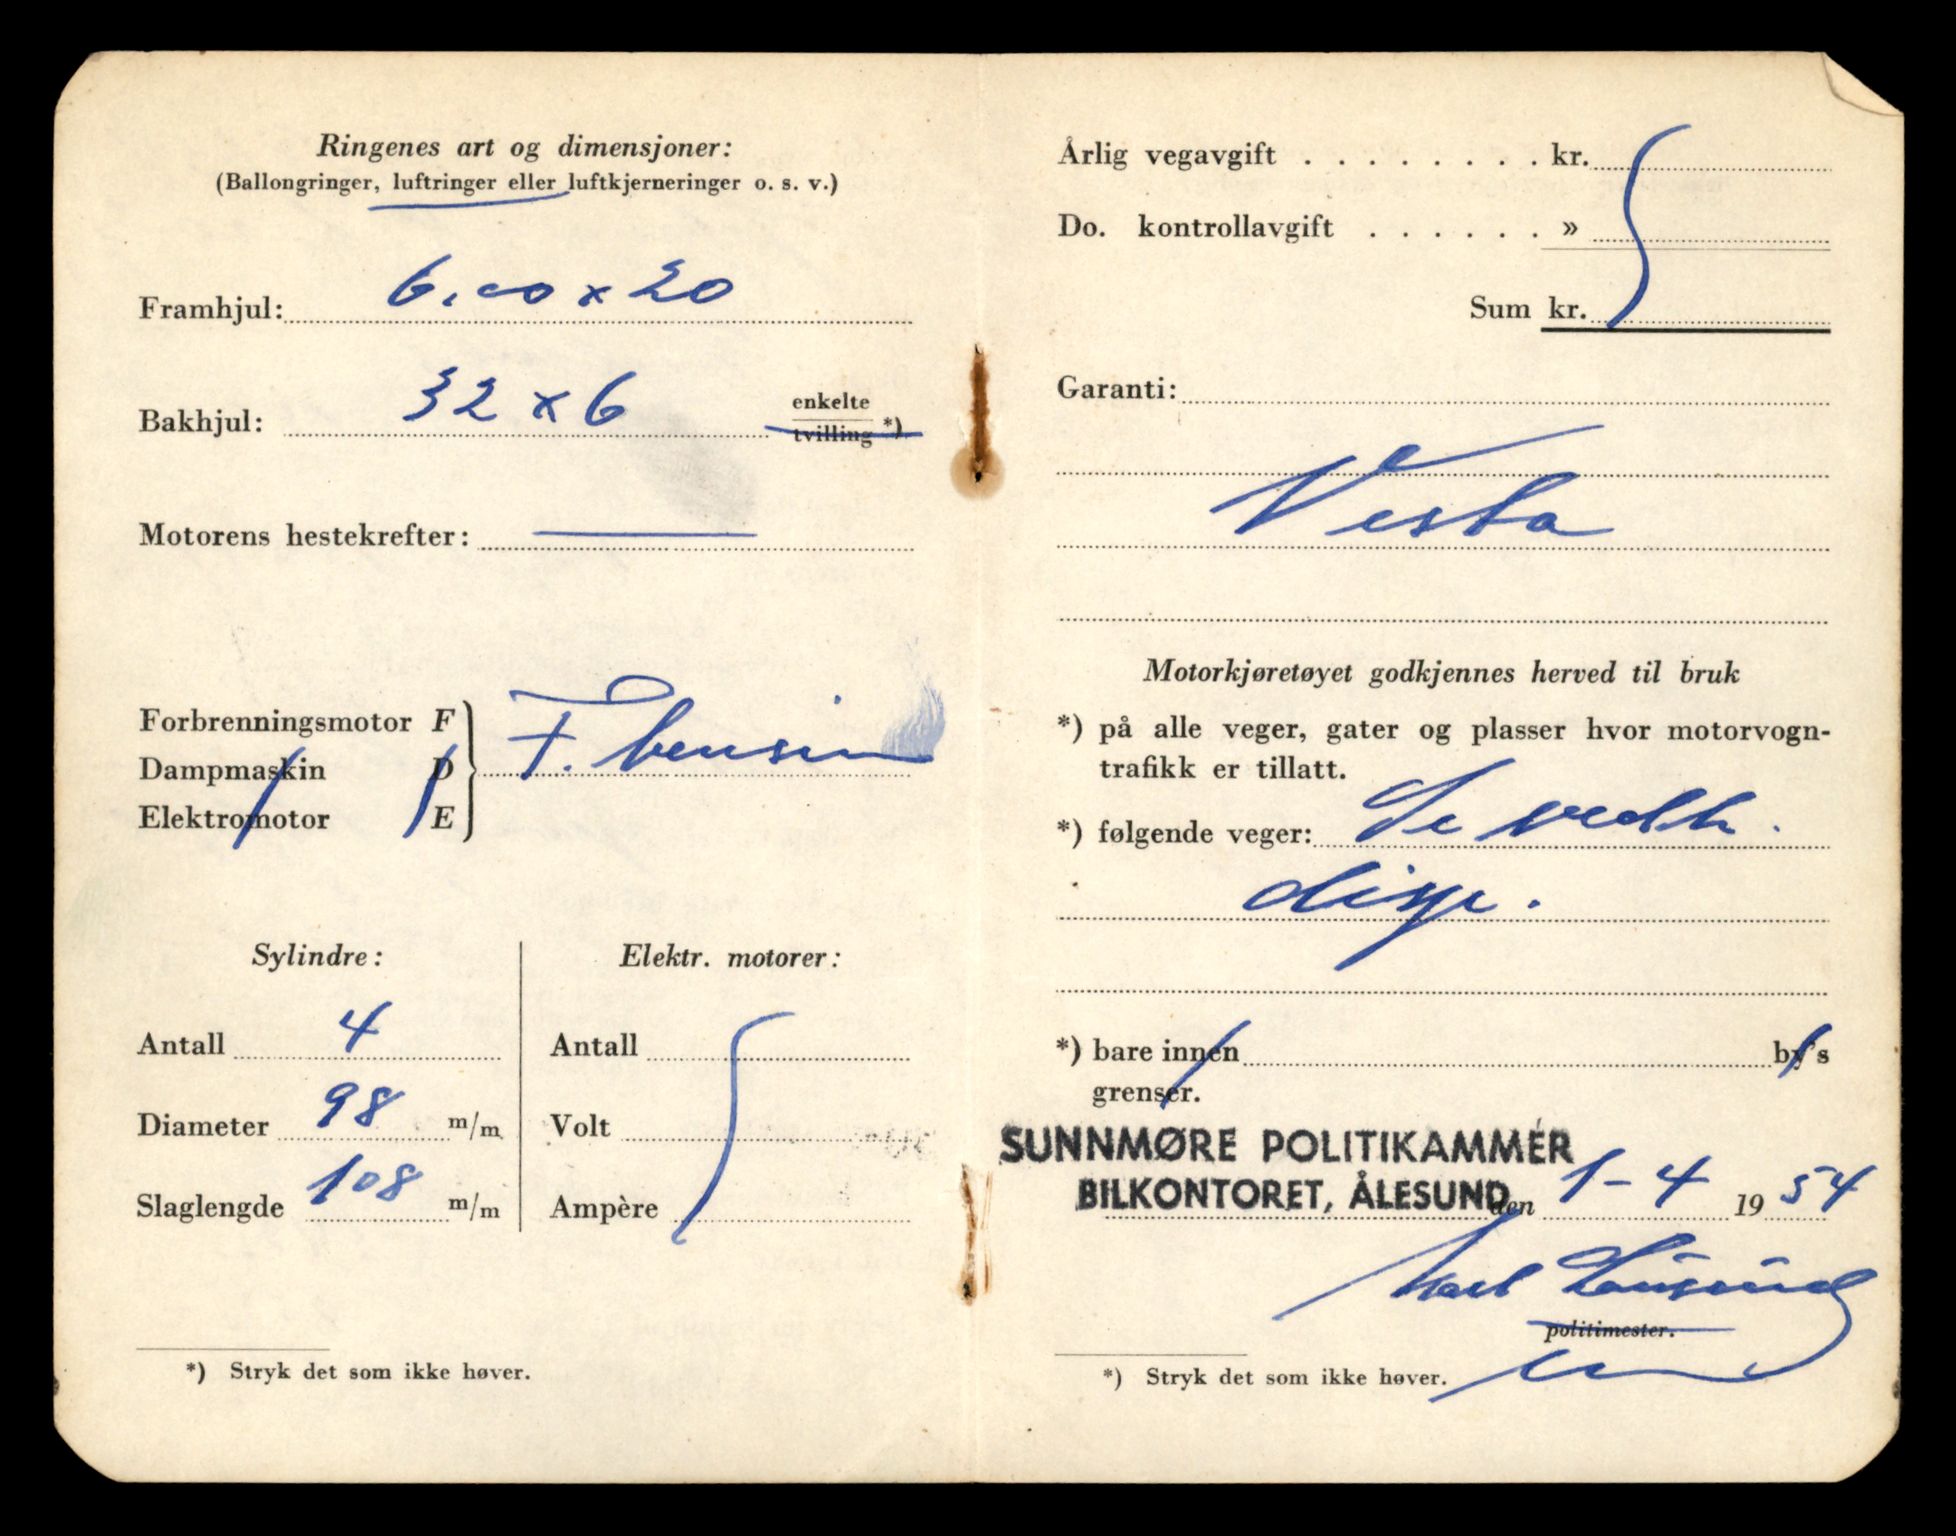 Ringenes art og dimensjoner:
(Ballongringer, luftringer eller luftkjerneringer o. s. v.)
Framhjul: 6,00 x 20
Bakhjul: 32 x 6 enkelte
tvilling *)
Motorens hestekrefter:
Forbrenningsmotor F
Dampmaskin D
Elektromotor E
F. bensin
Sylindre:
Antall 4
Diameter 98 m/m
Slaglengde 108 m/m
Elektr. motorer:
Antall
Volt
Ampère
*) Stryk det som ikke høver.
Årlig vegavgift . . . . . . . . kr.
Do. kontrollavgift . . . . . . »
Sum kr.
Garanti:
Vesta
Motorkjøretøyet godkjennes herved til bruk
*) på alle veger, gater og plasser hvor motorvogn-
trafikk er tillatt.
*) følgende veger: Se vedh.
disp.
*) bare innen by's
grenser.
SUNNMØRE POLITIKAMMER
BILKONTORET, ÅLESUND den 1-4 19 54
politimester.
*) Stryk det som ikke høver.